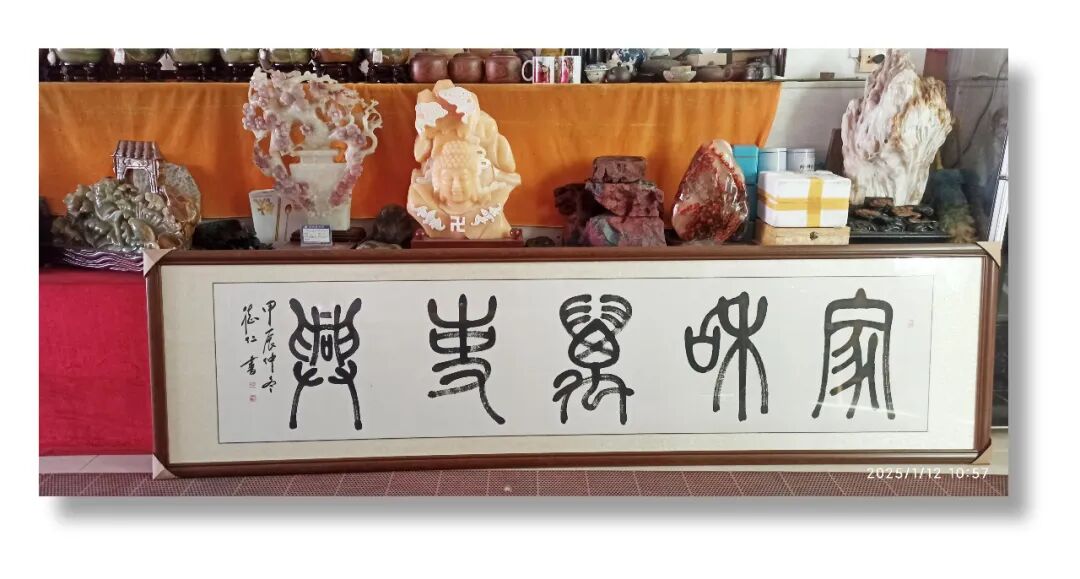 家和萬事興
甲辰仲冬
卍
2025/1/12 10:57